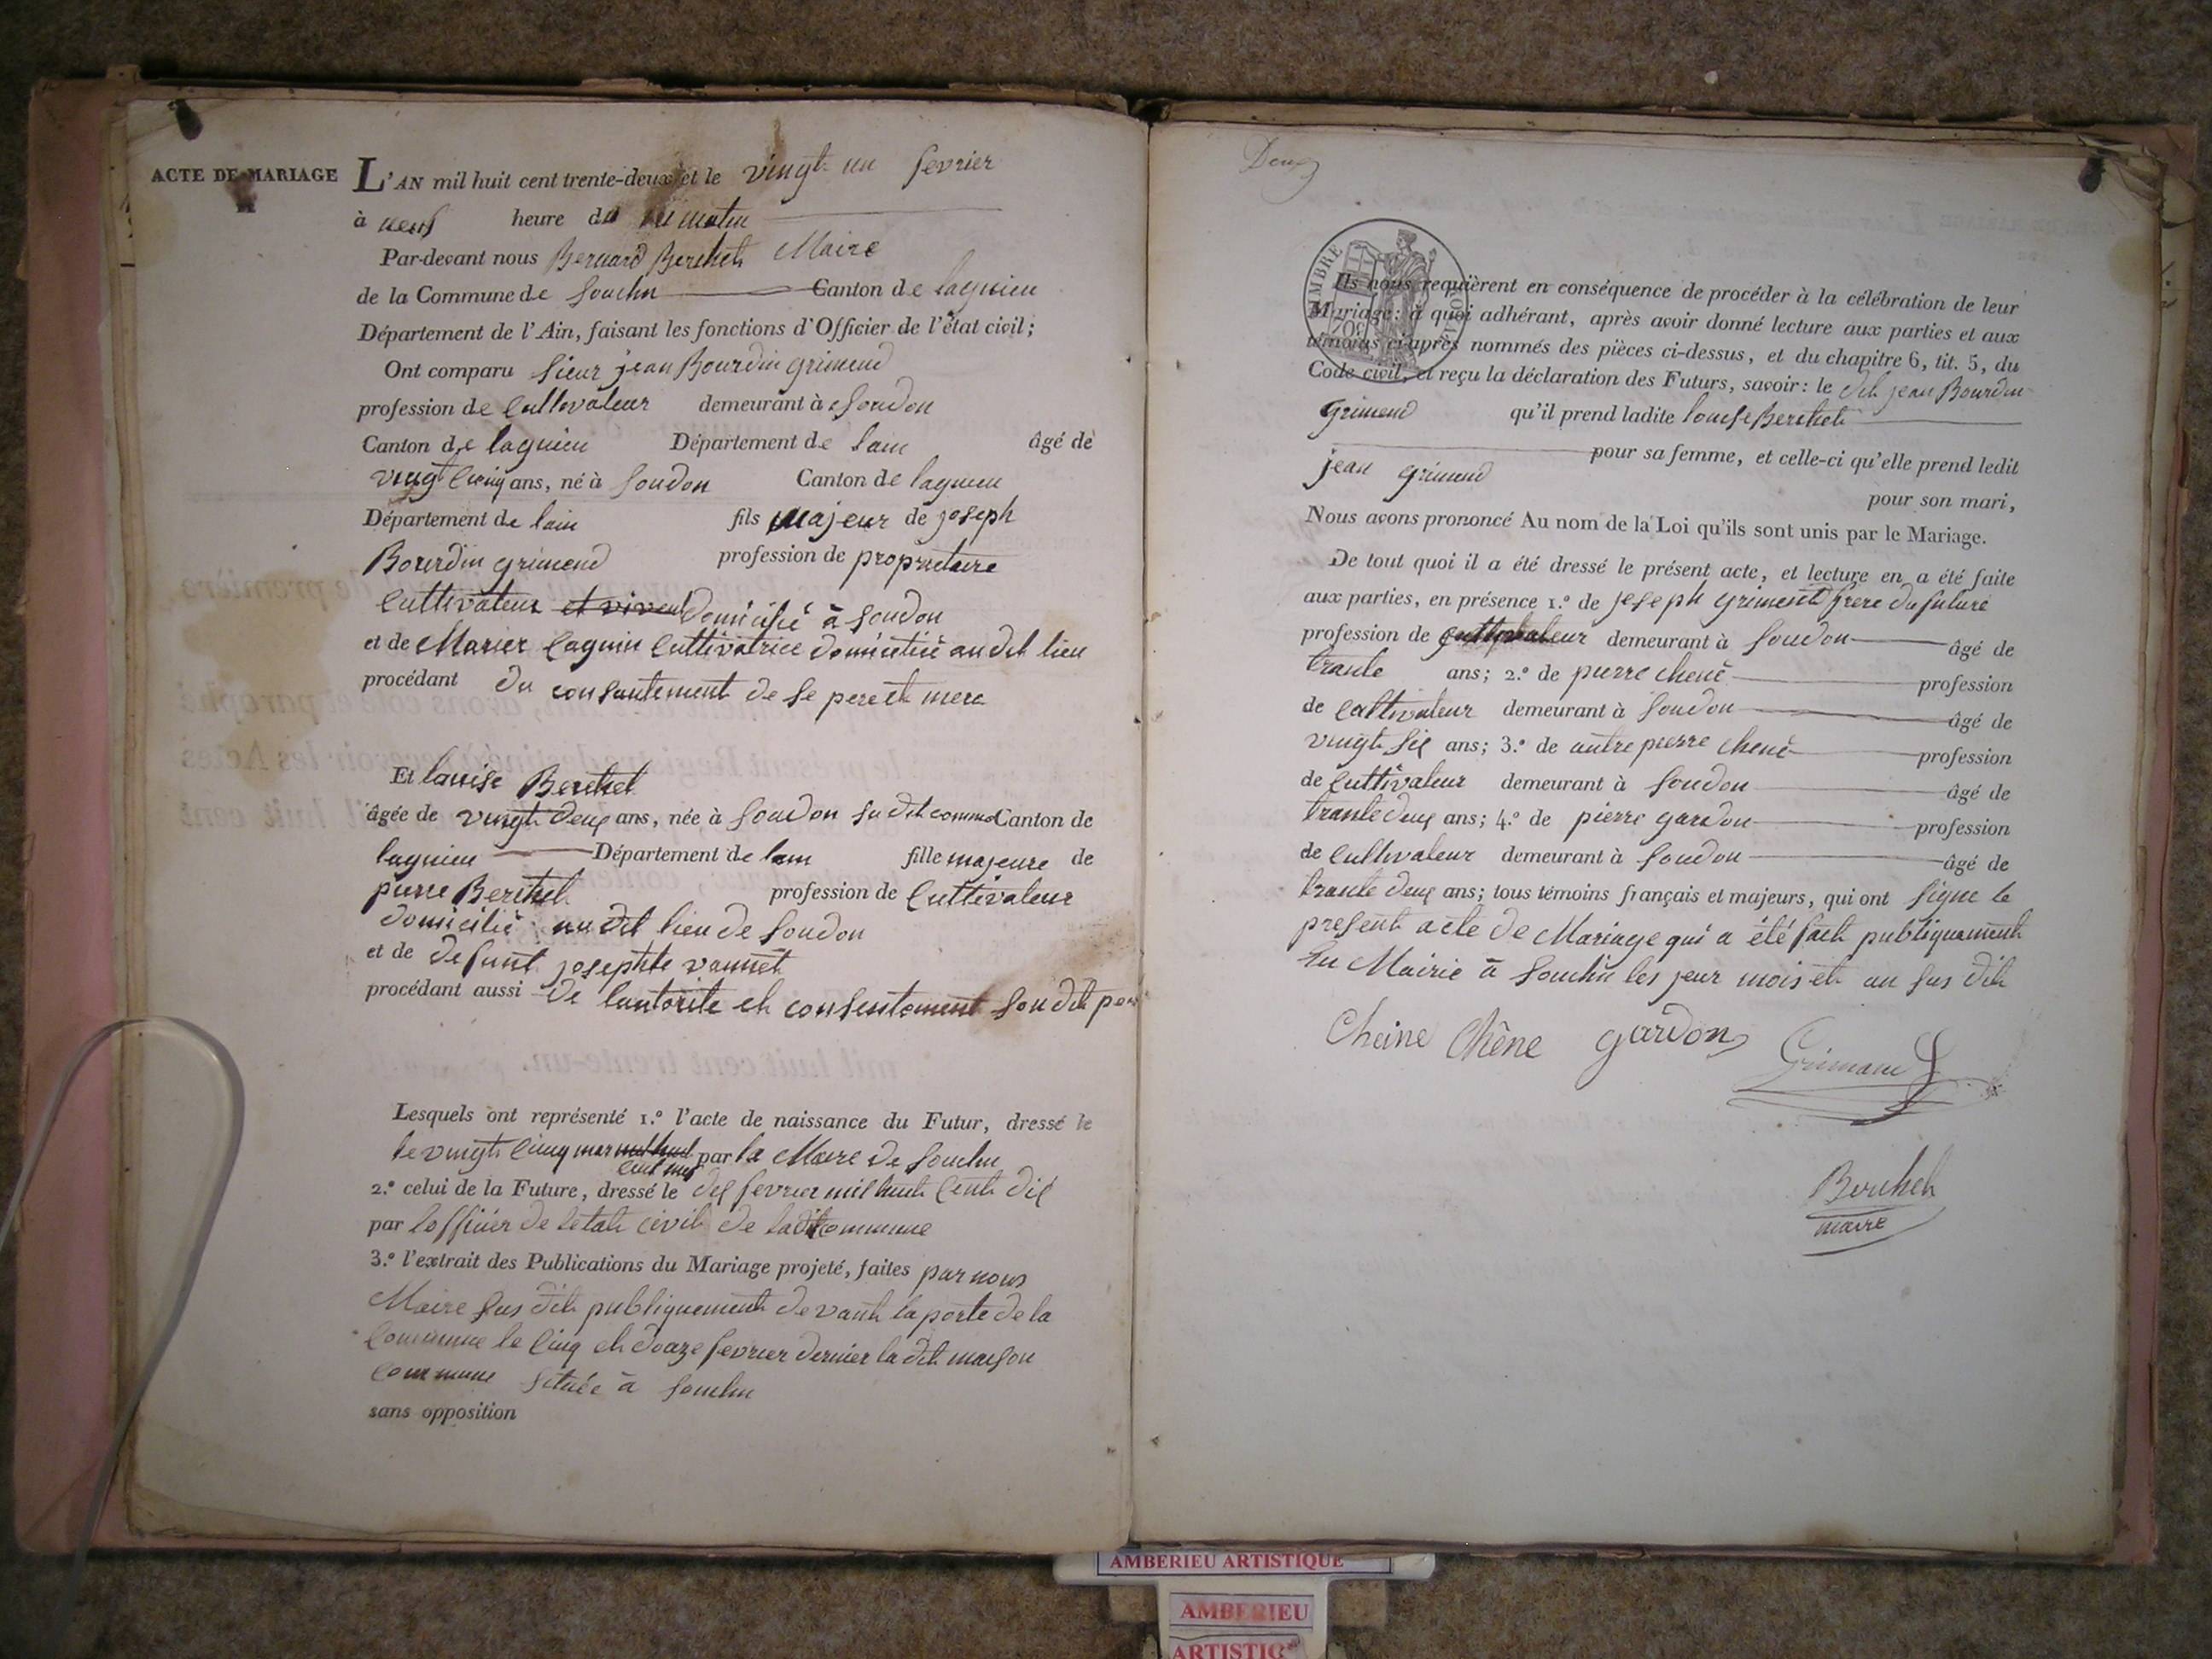 ACTE DE MARIAGE
DE
L'AN mil huit cent trente-deux et le vingt un fevrier
à neuf heure du matin
Par-devant nous Bernard Berthet Maire
de la Commune de Souclin Canton de lagnieu
Département de l'Ain, faisant les fonctions d'Officier de l'état civil;
Ont comparu sieur jean Bourdin grimend
profession de Cultivateur demeurant à Soudon
Canton de lagnieu Département de lain âgé de
vingt Cinq ans, né à Soudon Canton de lagnieu
Département de lain fils majeur de joseph
Bourdin grimend profession de propriétaire
Cultivateur et vivent domicilié à Soudon
et de Marier Cultivatrice domicilié au dit lieu
procédant du consantement de se pere et mere
Et louise Berthet
âgée de vingt deux ans, née à Soudon su dit comme Canton de
lagnieu Département de lain fille majeure de
pierre Berthet profession de Cultivateur
domicilié au dit lieu de Soudon
et de defunt josephte vannet
procédant aussi de lautorite et consentement son dit pere
Lesquels ont représenté 1.º l'acte de naissance du Futur, dressé le
le vingt Cinq mar mil huit par la Maire de Souclin
2.º celui de la Future, dressé le dix fevrier mil huit Cent dix
par lofficier de letat civil de ladit commune
3.º l'extrait des Publications du Mariage projeté, faites par nous
Maire sus dit publiquement devant la porte de la
Commune le Cinq et douze fevrier dernier la dit maison
Commune située à Souclin
sans opposition
Deux
TIMBRE ROYAL
Ils nous requièrent en conséquence de procéder à la célébration de leur
Mariage: à quoi adhérant, après avoir donné lecture aux parties et aux
témoins ci-après nommés des pièces ci-dessus, et du chapitre 6, tit. 5, du
Code civil, et reçu la déclaration des Futurs, savoir: le dit jean Bourdin
Grimend qu'il prend ladite louise Berthet
pour sa femme, et celle-ci qu'elle prend ledit
jean grimend
pour son mari,
Nous avons prononcé Au nom de la Loi qu'ils sont unis par le Mariage.
De tout quoi il a été dressé le présent acte, et lecture en a été faite
aux parties, en présence 1.º de joseph griment frere du future
profession de Cultivateur demeurant à Soudon âgé de
trante ans; 2.º de pierre chené profession
de Cultivateur demeurant à Soudon âgé de
vingt six ans; 3.º de autre pierre chené profession
de Cultivateur demeurant à Soudon âgé de
trante deux ans; 4.º de pierre gardon profession
de Cultivateur demeurant à Soudon âgé de
trante deux ans; tous témoins français et majeurs, qui ont signe le
present acte de Mariage qui a été fait publiquement
En Mairie à Souclin les jour mois et an sus dit
Cheine Chêne gardon Grimand
Berthet
maire
AMBERIEU ARTISTIQUE
AMBERIEU
ARTISTIQ